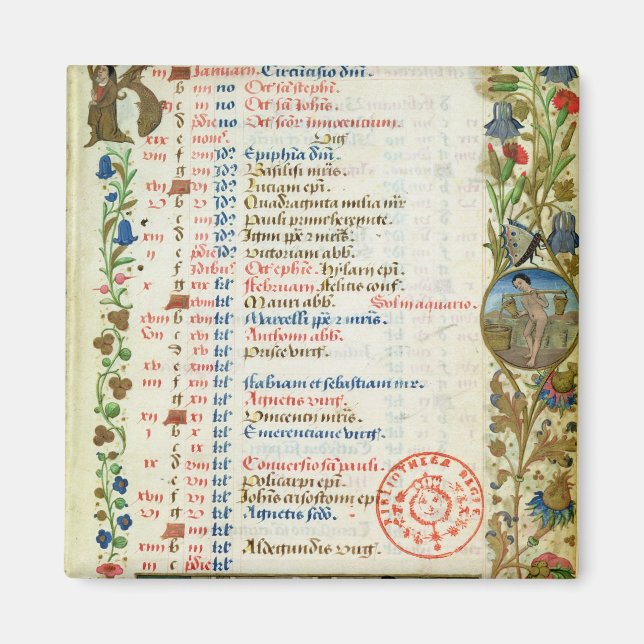 iii Januarii. Circūcisio dm̄.
b iiii no Oct̄ sā stephī.
c iii no Oct̄ sā Iohīs.
d pdie no Oct̄ scōr innocencium
xix e nonᵉ. Virḡ
viii f viii Idᵒ Epiphīa dm̄.
g vii Idᵒ Basilisi mr̄is.
xvi vi Idᵒ Luciani epī.
v b v Idᵒ Quadraginta milia mr̄
c Idᵒ Pauli primi heremite.
xiii d iii Idᵒ Igini pp̄e z mr̄is.
ii e pdie Idᵒ Victoriani epī.
f Idibᵘ. Oct̄ ephīe. Hylarii epī.
x g xix kl̄ Februarii. Felicis conf.
xviii kl̄ Mauri abb̄. Sol in aquario.
xviii b xvii kl̄ Marcelli pp̄e z mr̄is.
vii c xvi kl̄ Anthonii abb̄.
d xv kl̄ Prisce virḡ.
xv e kl̄
iiii f kl̄ Fabiani et sebastiani mr̄.
g xii kl̄ Agnetis virḡ.
xii xi kl̄ Vincencii mr̄is.
i b x kl̄ Emerenciane virḡ.
c kl̄
ix d viii kl̄ Conversio sā pauli.
e vii kl̄ Policarpi epī.
xvii f vi kl̄ Iohīs crisostomi epī
vi g v kl̄ Agnetis scdō.
iiii kl̄
xiiii b iii kl̄ Aldegundis virḡ.
iii c pdie kl̄
BIBLIOTHECA REGIÆ